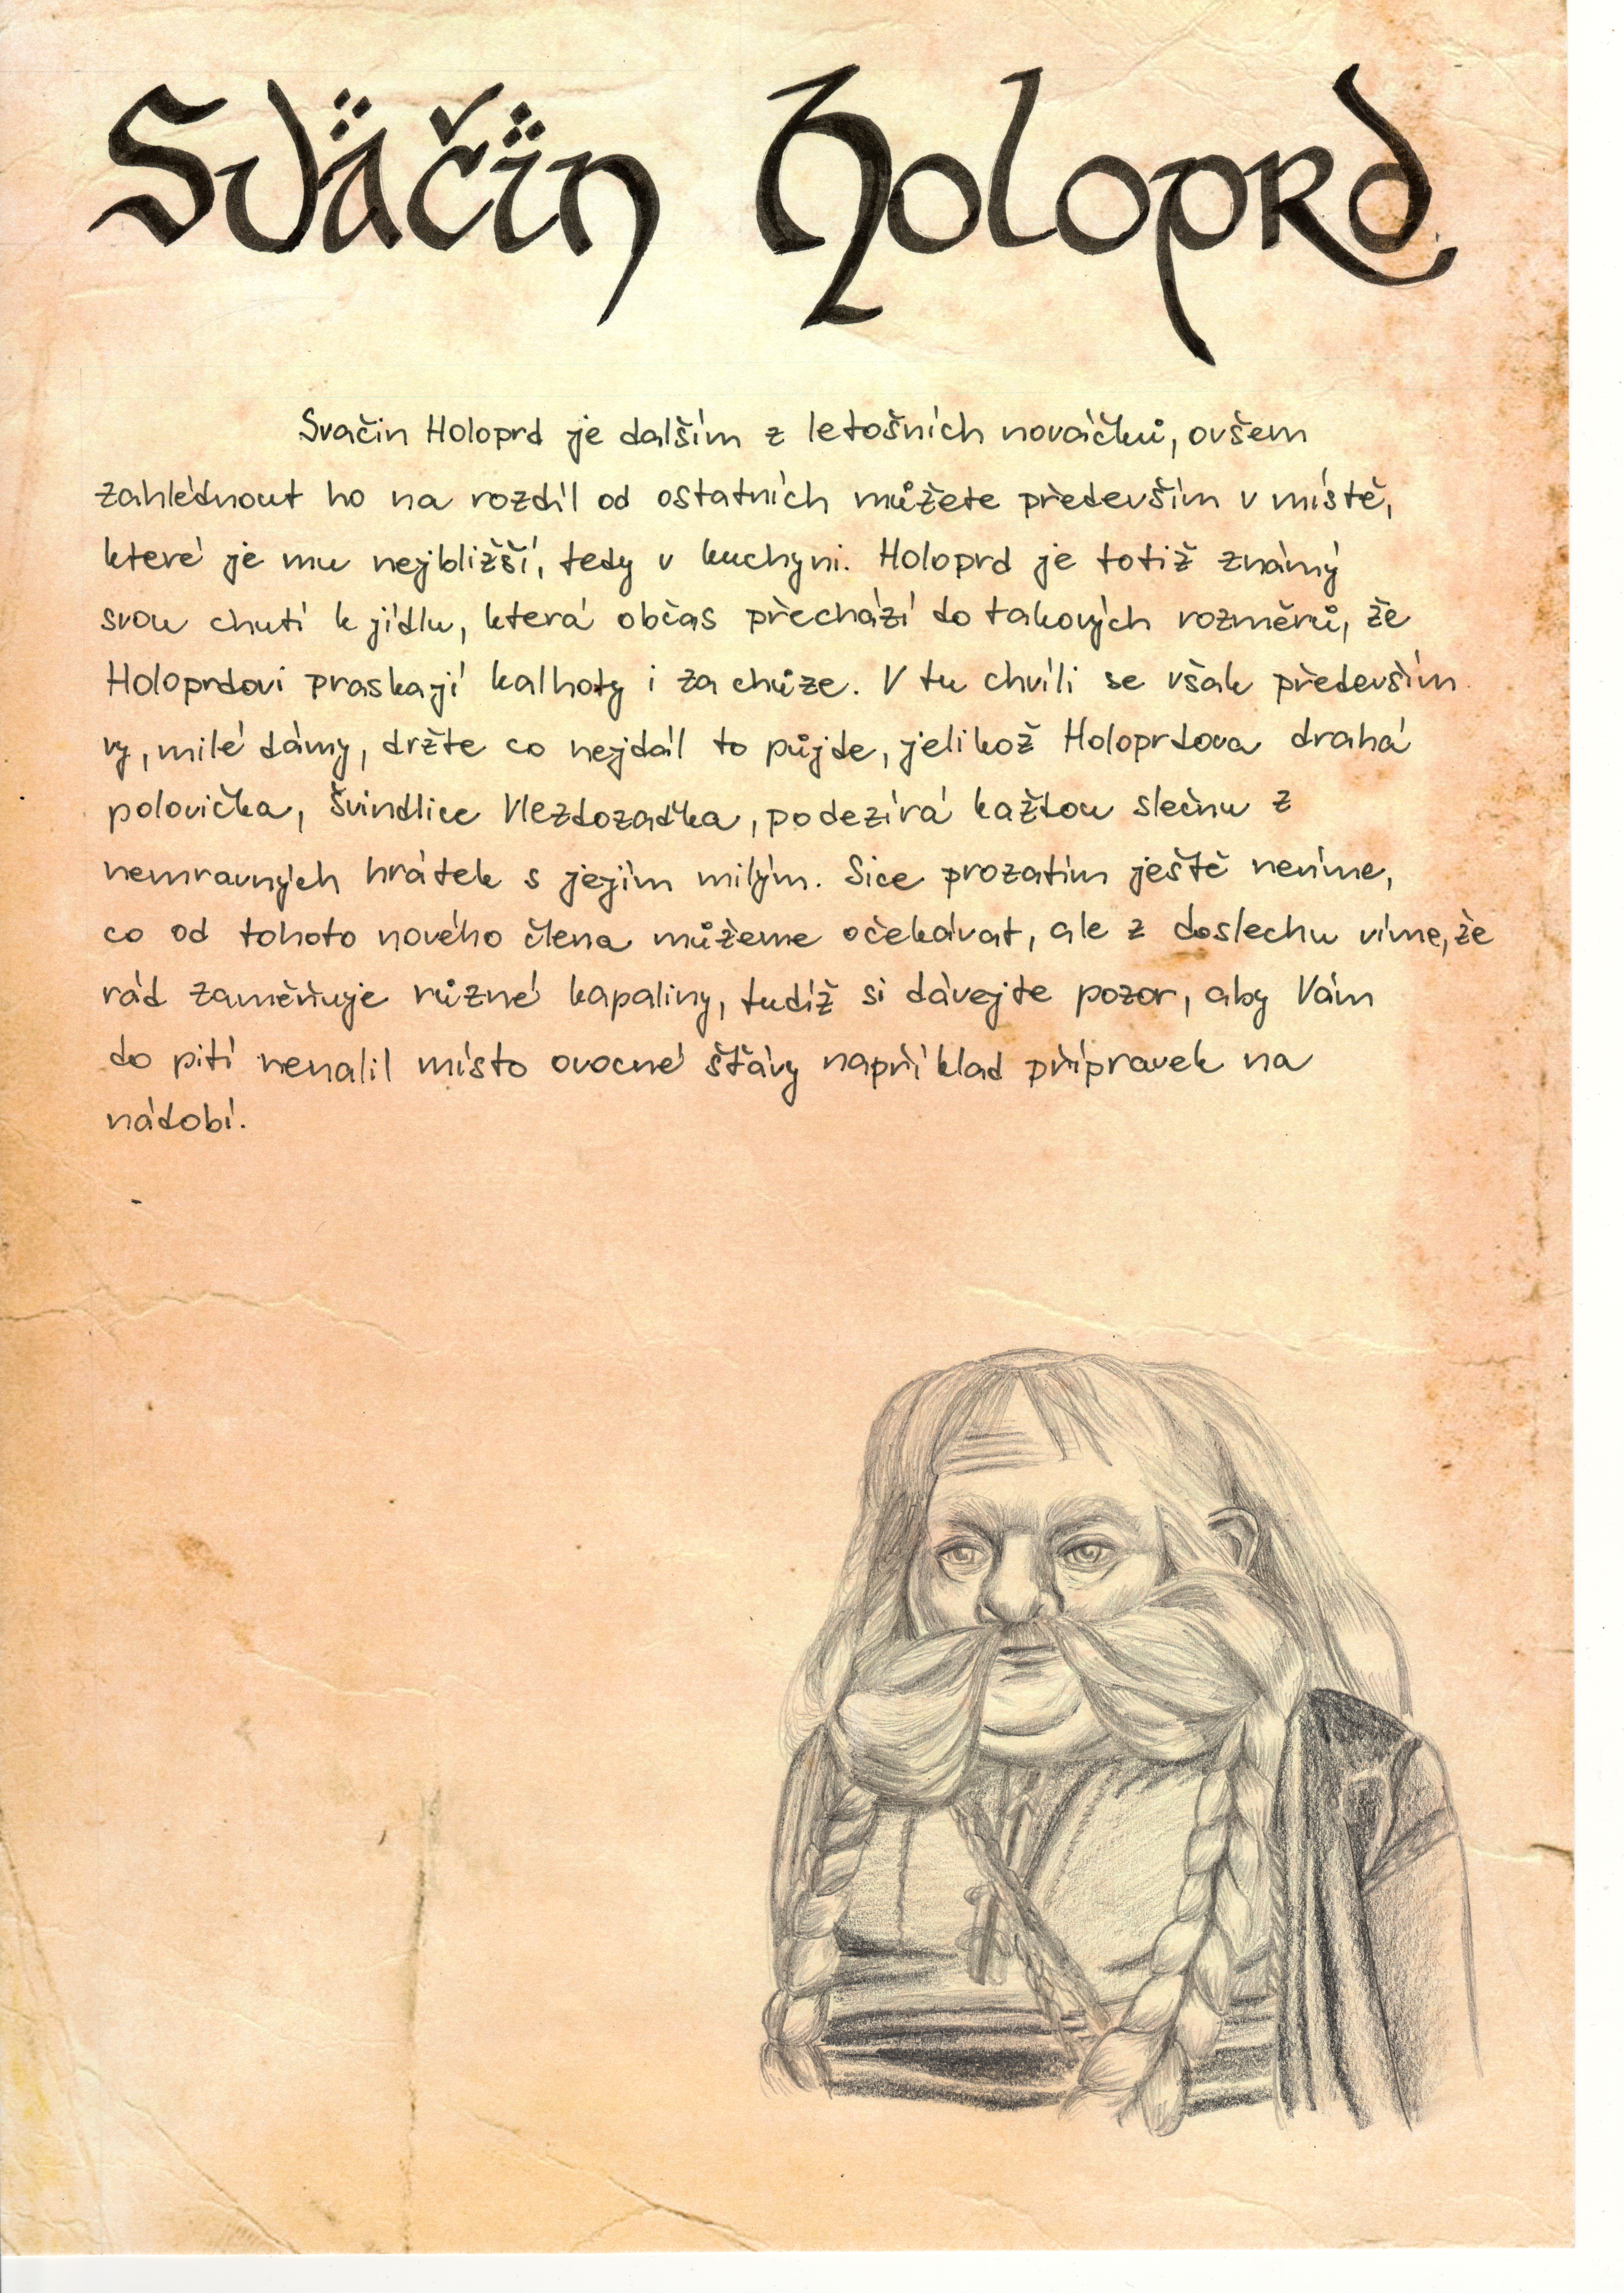 Sväčïn Holoprd
Svačin Holoprd je dalším z letošních nováčků, ovšem
zahlédnout ho na rozdíl od ostatních můžete především v místě,
které je mu nejbližší, tedy v kuchyni. Holoprd je totiž známý
svou chutí k jídlu, která občas přechází do takových rozměrů, že
Holoprdovi praskají kalhoty i za chůze. V tu chvíli se však především
vy, milé dámy, držte co nejdál to půjde, jelikož Holoprdova drahá
polovička, Švindlice Vlezdozaďka, podezírá každou slečnu z
nemravných hrátek s jejím milým. Sice prozatím ještě nevíme,
co od tohoto nového člena můžeme očekávat, ale z doslechu víme, že
rád zaměňuje různé kapaliny, tudíž si dávejte pozor, aby Vám
do pití nenalil místo ovocné šťávy například přípravek na
nádobí.